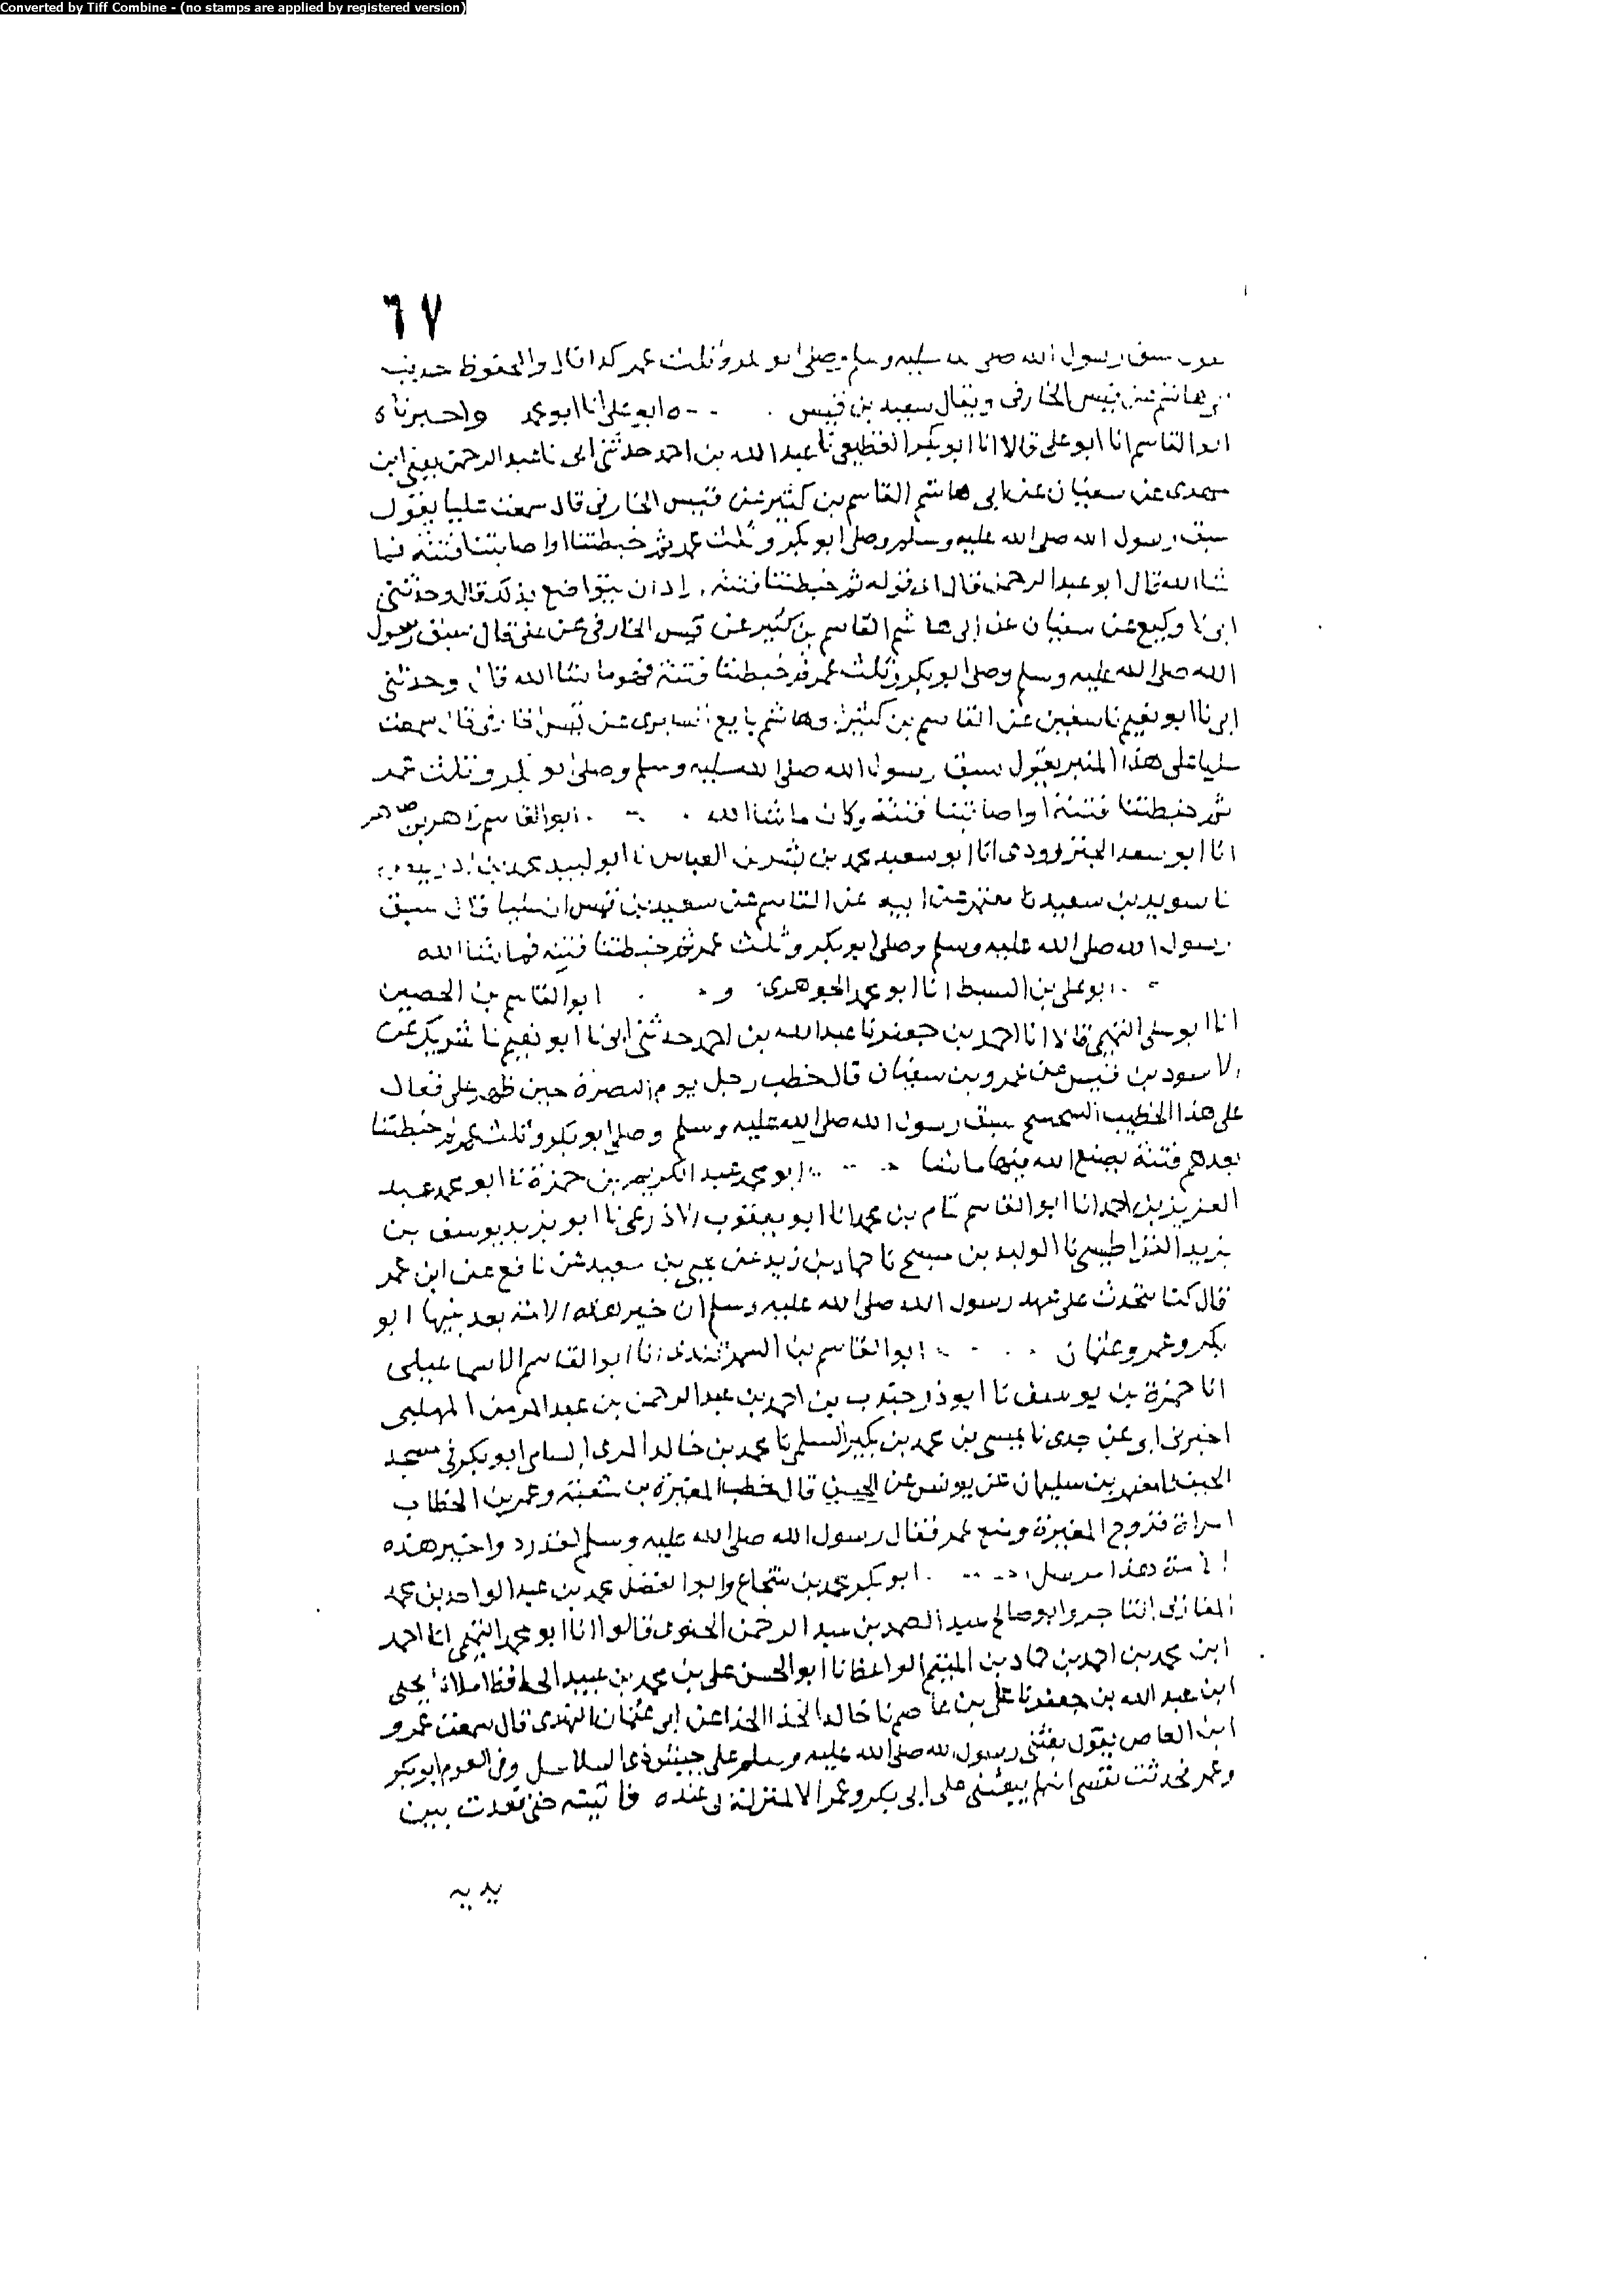 Converted by Tiff Combine - (no stamps are applied by registered version)
٦٧
سبق رسول الله صلى الله عليه وسلم وصلى ابو بكر وثلث عمر كذا قال والمحفوظ حديث
هاشم عن قيس الخارفى ويقال سعيد بن قيس ابو على انا ابو محمد واخبرناه
ابو القاسم انا ابو على قالا انا ابو بكر القطيعى نا عبد الله بن احمد حدثنى ابى نا عبد الرحمن يعنى ابن
مهدى عن سفيان عن ابى هاشم القاسم بن كثير عن قيس الخارفى قال سمعت عليا يقول
سبق رسول الله صلى الله عليه وسلم وصلى ابو بكر وثلث عمر ثم خبطتنا او اصابتنا فتنة فما
شا الله قال ابو عبد الرحمن قال ابى قوله ثم خبطتنا فتنة اراد ان يتواضع بذلك قال وحدثنى
ابى نا وكيع عن سفيان عن ابى هاشم القاسم بن كثير عن قيس الخارفى عن على قال سبق رسول
الله صلى الله عليه وسلم وصلى ابو بكر وثلث عمر ثم خبطتنا فتنة فهو ما شا الله قال وحدثنى
ابى نا ابو نعيم نا سفين عن القاسم بن كثير ابو هاشم بايع السابرى عن قيس الخارفى قال سمعت
عليا على هذا المنبر يقول سبق رسول الله صلى الله عليه وسلم وصلى ابو بكر وثلث عمر
ثم خبطتنا فتنة او اصابتنا فتنة وكان ما شا الله ابو القاسم زاهر بن طاهر
انا ابو سعد الجنزرودى انا ابو سعيد محمد بن بشر بن العباس نا ابو لبيد محمد بن ادريس
نا سويد بن سعيد نا معتمر عن ابيه عن القاسم عن سعيد بن قيس ان عليا قال سبق
رسول الله صلى الله عليه وسلم وصلى ابو بكر وثلث عمر ثم خبطتنا فتنة فما شا الله
ابو على بن السبط انا ابو محمد الجوهرى و ابو القاسم بن الحصين
انا ابو على التميمى قالا انا احمد بن جعفر نا عبد الله بن احمد حدثنى ابى نا ابو نعيم نا شريك عن
الاسود بن قيس عن عمرو بن سفيان قال خطب رجل يوم البصرة حين ظهر على فقال
على هذا الخطيب الشحشح سبق رسول الله صلى الله عليه وسلم وصلى ابو بكر وثلث عمر ثم خبطتنا
بعدهم فتنة يصنع الله فيها ما شا ابو محمد عبد الكريم بن حمزة نا ابو محمد عبد
العزيز بن احمد انا ابو القاسم تمام بن محمد انا ابو يعقوب الاذرعى نا ابو يزيد يوسف بن
يزيد القراطيسى نا الوليد بن مسبح نا حماد بن زيد عن يحيى بن سعيد عن نافع عن ابن عمر
قال كنا نتحدث على عهد رسول الله صلى الله عليه وسلم ان خير هذه الامة بعد نبيها ابو
بكر وعمر وعثمان ابو القاسم بن السمرقندى انا ابو القاسم الاسماعيلى
انا حمزة بن يوسف نا ابو ذر جندب بن احمد بن عبد الرحمن بن عبد المومن المهلبى
اخبرنى ابى عن جدى نا عيسى بن محمد بن بكير السلمى نا محمد بن خالد السامى ابو بكر فى مسجد
نا معتمر بن سليمان عن يونس عن الحسن قال خطب المغيرة بن شعبة وعمر بن الخطاب
امراة فزوج المغيرة ومنع عمر فقال رسول الله صلى الله عليه وسلم لقد رد واخير هذه
الامة وهذا مرسل ابو بكر محمد بن شجاع وابو الفضل محمد بن عبد الواحد بن محمد
المغازلى التاجر وابو صالح عبد الصمد بن عبد الرحمن الحنوى قالوا انا ابو محمد التميمى انا احمد
ابن محمد بن احمد بن حماد بن المتيم الواعظ نا ابو الحسن على بن محمد بن عبيد الحافظ املا نا يحيى
ابن عبد الله بن جعفر نا على بن عاصم نا خالد الحذا الحذا عن ابى عثمان النهدى قال سمعت عمرو
ابن العاص يقول بعثنى رسول الله صلى الله عليه وسلم على جيش ذى السلاسل وفى القوم ابو بكر
وعمر فحدثت نفسى انه لم يبعثنى على ابى بكر وعمر الا لمنزلة لى عنده فاتيته حتى قعدت بين
يديه